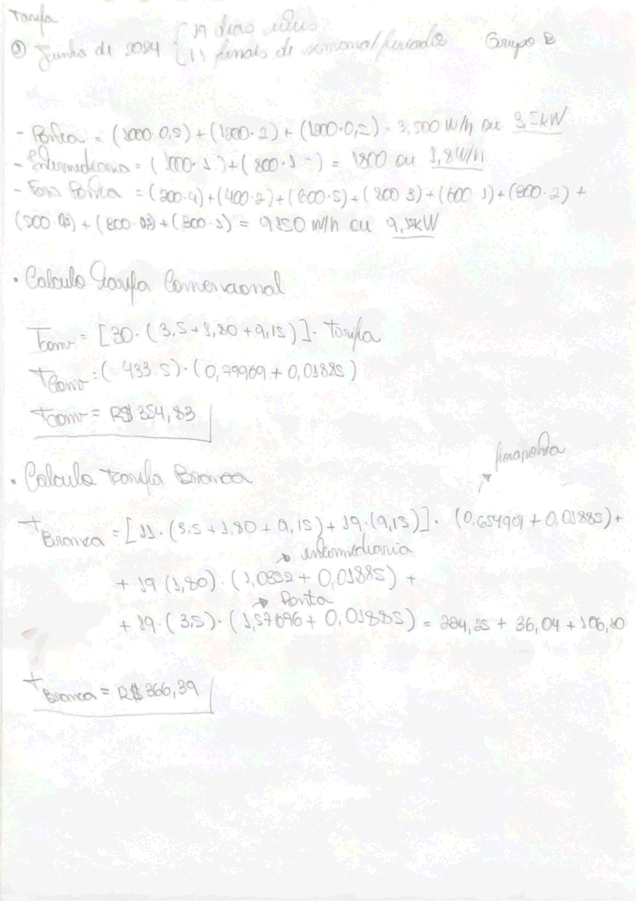 Tarifa
① Junho de 2024 { 19 dias úteis
11 finais de semana/feriado
Grupo B
- Ponta = (2000·0,5) + (1200·2) + (1200·0,5) = 3,500 W/h ou 3,5kW
- Intermediaria = (1000·1) + (800·1) = 1800 ou 1,8W/h
- Fora Ponta = (200·4) + (400·2) + (600·5) + (800·3) + (600·1) + (900·2) +
= 9150 W/h ou 9,15kW
• Calculo Tarifa Convencional
Tconv = [30·(3,5+1,80+9,15)]· Tarifa
Tconv = (433.5)·(0,79969 + 0,01885)
Tconv = R$ 354,83
• Calculo Tarifa Branca
foraponta
TBranca = [11·(3,5+1,80+9,15) + 19·(9,15)]· (0,654909 + 0,01885) +
→ intermediaria
+ 19 (1,80)·(1,0352 + 0,01885) +
→ Ponta
+ 19·(3,5)·(1,57696 + 0,01885) = 224,25 + 36,04 + 106,10
TBranca = R$ 366,39